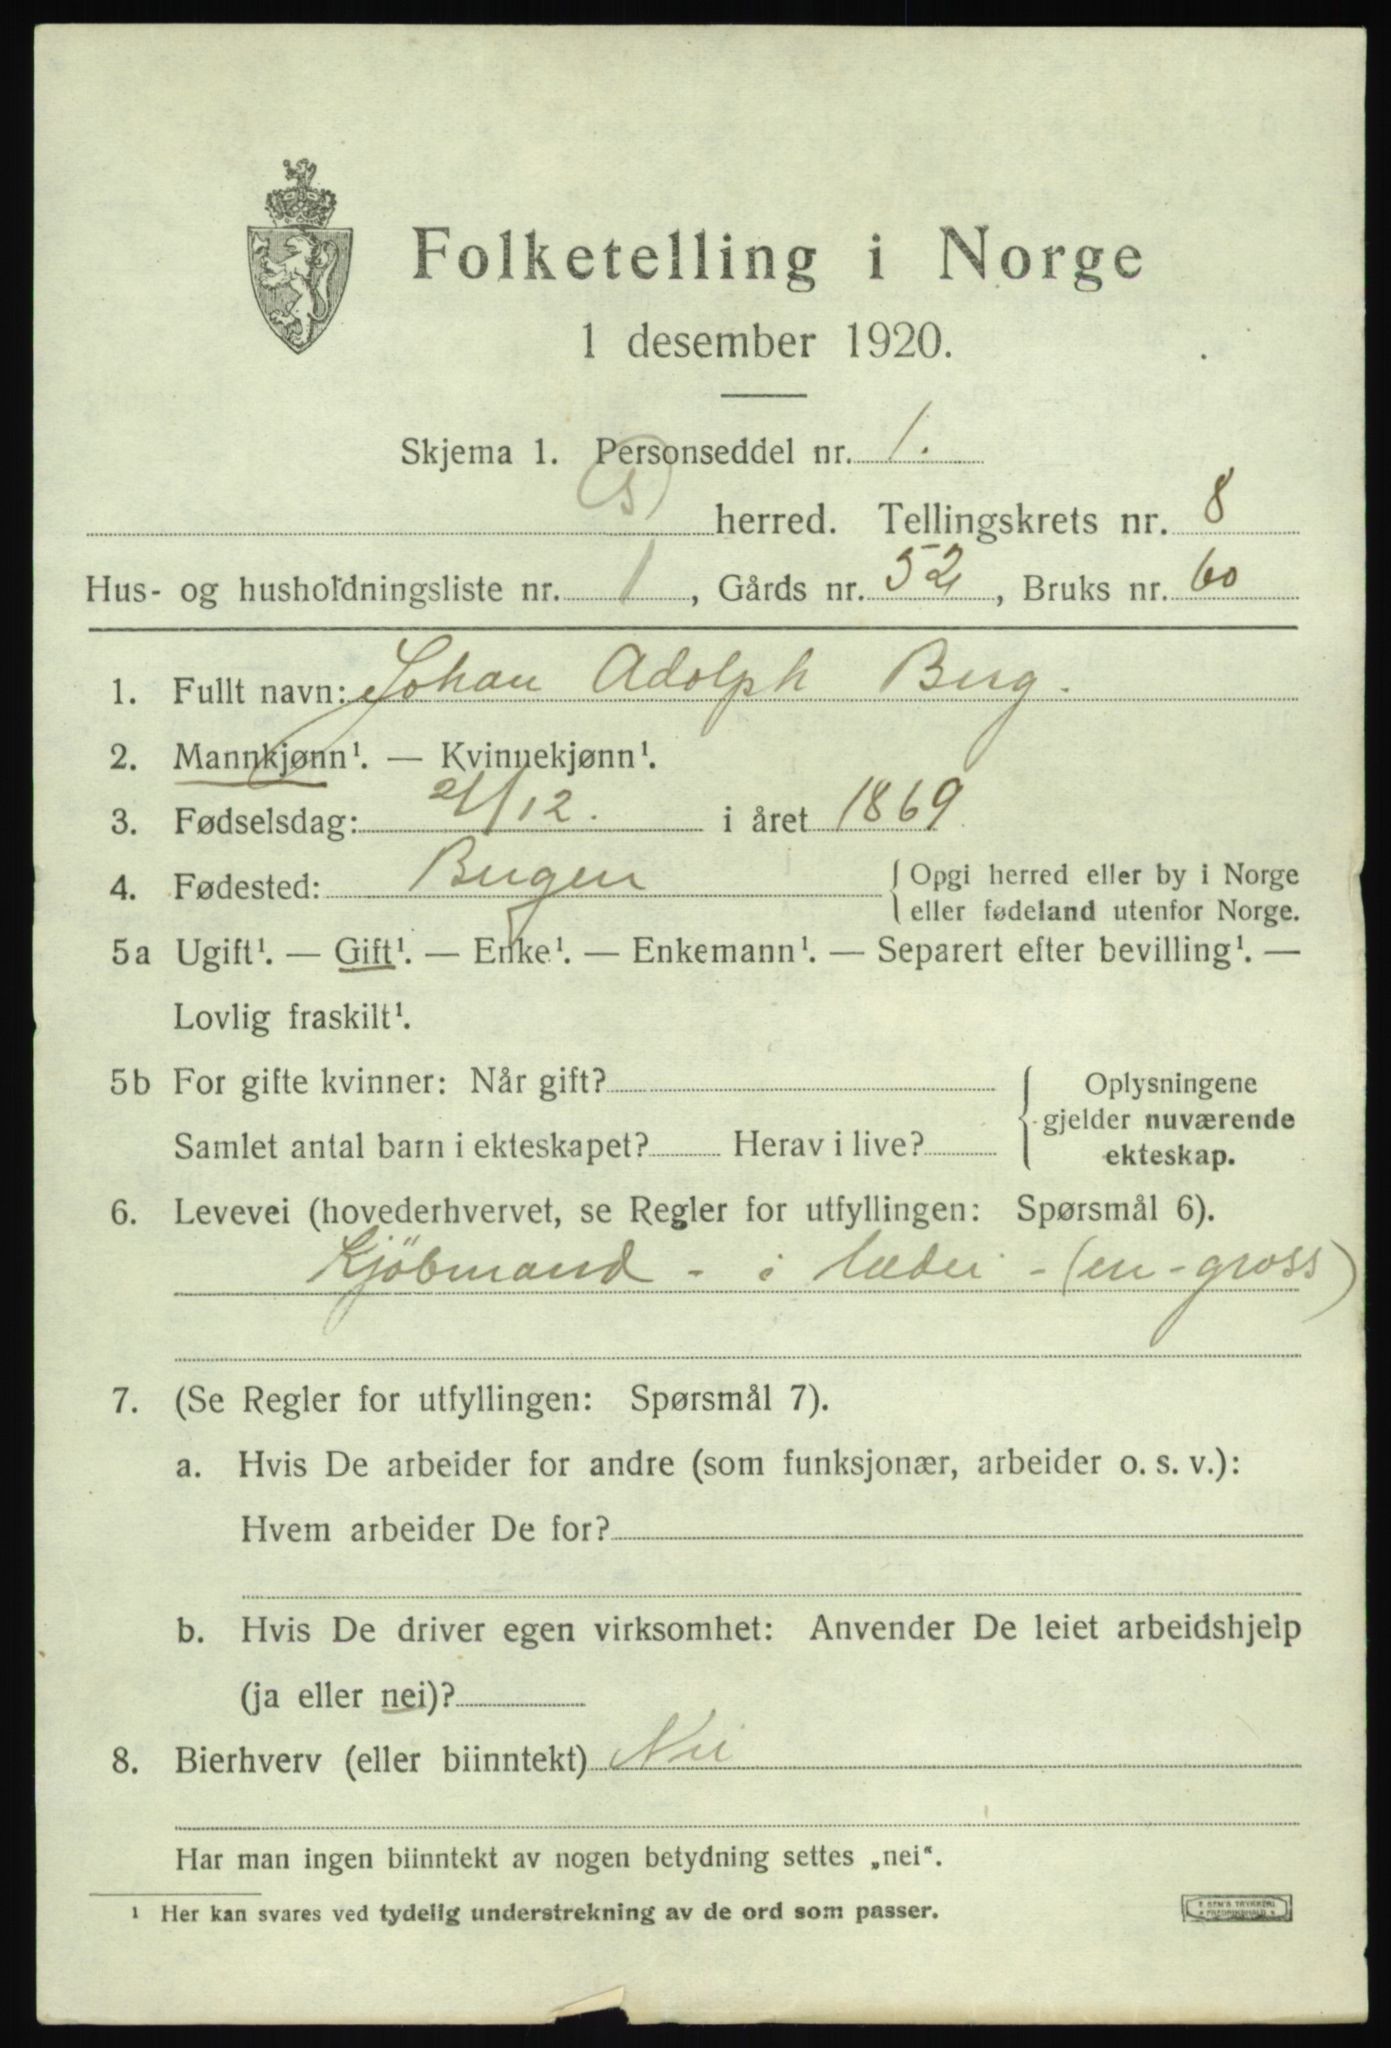 Folketelling i Norge
1 desember 1920.
Skjema 1. Personseddel nr. 1.
herred. Tellingskrets nr. 8
Hus- og husholdningsliste nr. 1, Gårds nr. 52, Bruks nr. 60
1. Fullt navn: Johan Adolph Berg.
2. Mannkjønn¹. — Kvinnekjønn¹.
3. Fødselsdag: 21/12. i året 1869
4. Fødested: Bergen { Opgi herred eller by i Norge
eller fødeland utenfor Norge.
5a Ugift¹. — Gift¹. — Enke¹. — Enkemann¹. — Separert efter bevilling¹. —
Lovlig fraskilt¹.
5b For gifte kvinner: Når gift? { Oplysningene
gjelder nuværende
Samlet antal barn i ekteskapet? Herav i live? ekteskap.
6. Levevei (hovederhvervet, se Regler for utfyllingen: Spørsmål 6).
Kjöbmand - i læder - (en-gross)
7. (Se Regler for utfyllingen: Spørsmål 7).
a. Hvis De arbeider for andre (som funksjonær, arbeider o. s. v.):
Hvem arbeider De for?
b. Hvis De driver egen virksomhet: Anvender De leiet arbeidshjelp
(ja eller nei)?
8. Bierhverv (eller biinntekt) Nei
Har man ingen biinntekt av nogen betydning settes „nei“.
¹ Her kan svares ved tydelig understrekning av de ord som passer.